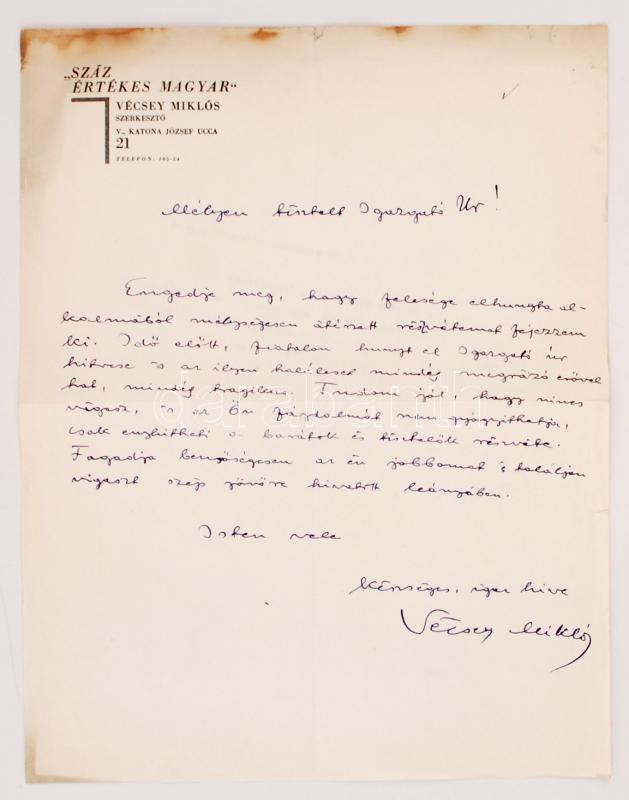 „SZÁZ
ÉRTÉKES MAGYAR“
VÉCSEY MIKLÓS
SZERKESZTŐ
V., KATONA JÓZSEF UCCA
21
TELEFON: 185-54
Mélyen tisztelt Igazgató Ur!
Engedje meg, hogy felesége elhunyta al-
kalmából mélységesen átérzett részvétemet fejezzem
ki. Idő előtt, fiatalon hunyt el Igazgató úr
hitvese és az ilyen haláleset mindég megrázó erővel
hat, mindég tragikus. Tudom jól, hogy nincs
vigasz, és az Ön fájdalmát nem gyógyíthatja,
csak enyhítheti a barátok és tisztelők részvéte.
Fogadja bensőségesen az én jobbomat s találjon
vigaszt szép jövőre hivatott leányában.
Isten vele
Készséges, igaz hive
Vécsey Miklós
darabanth